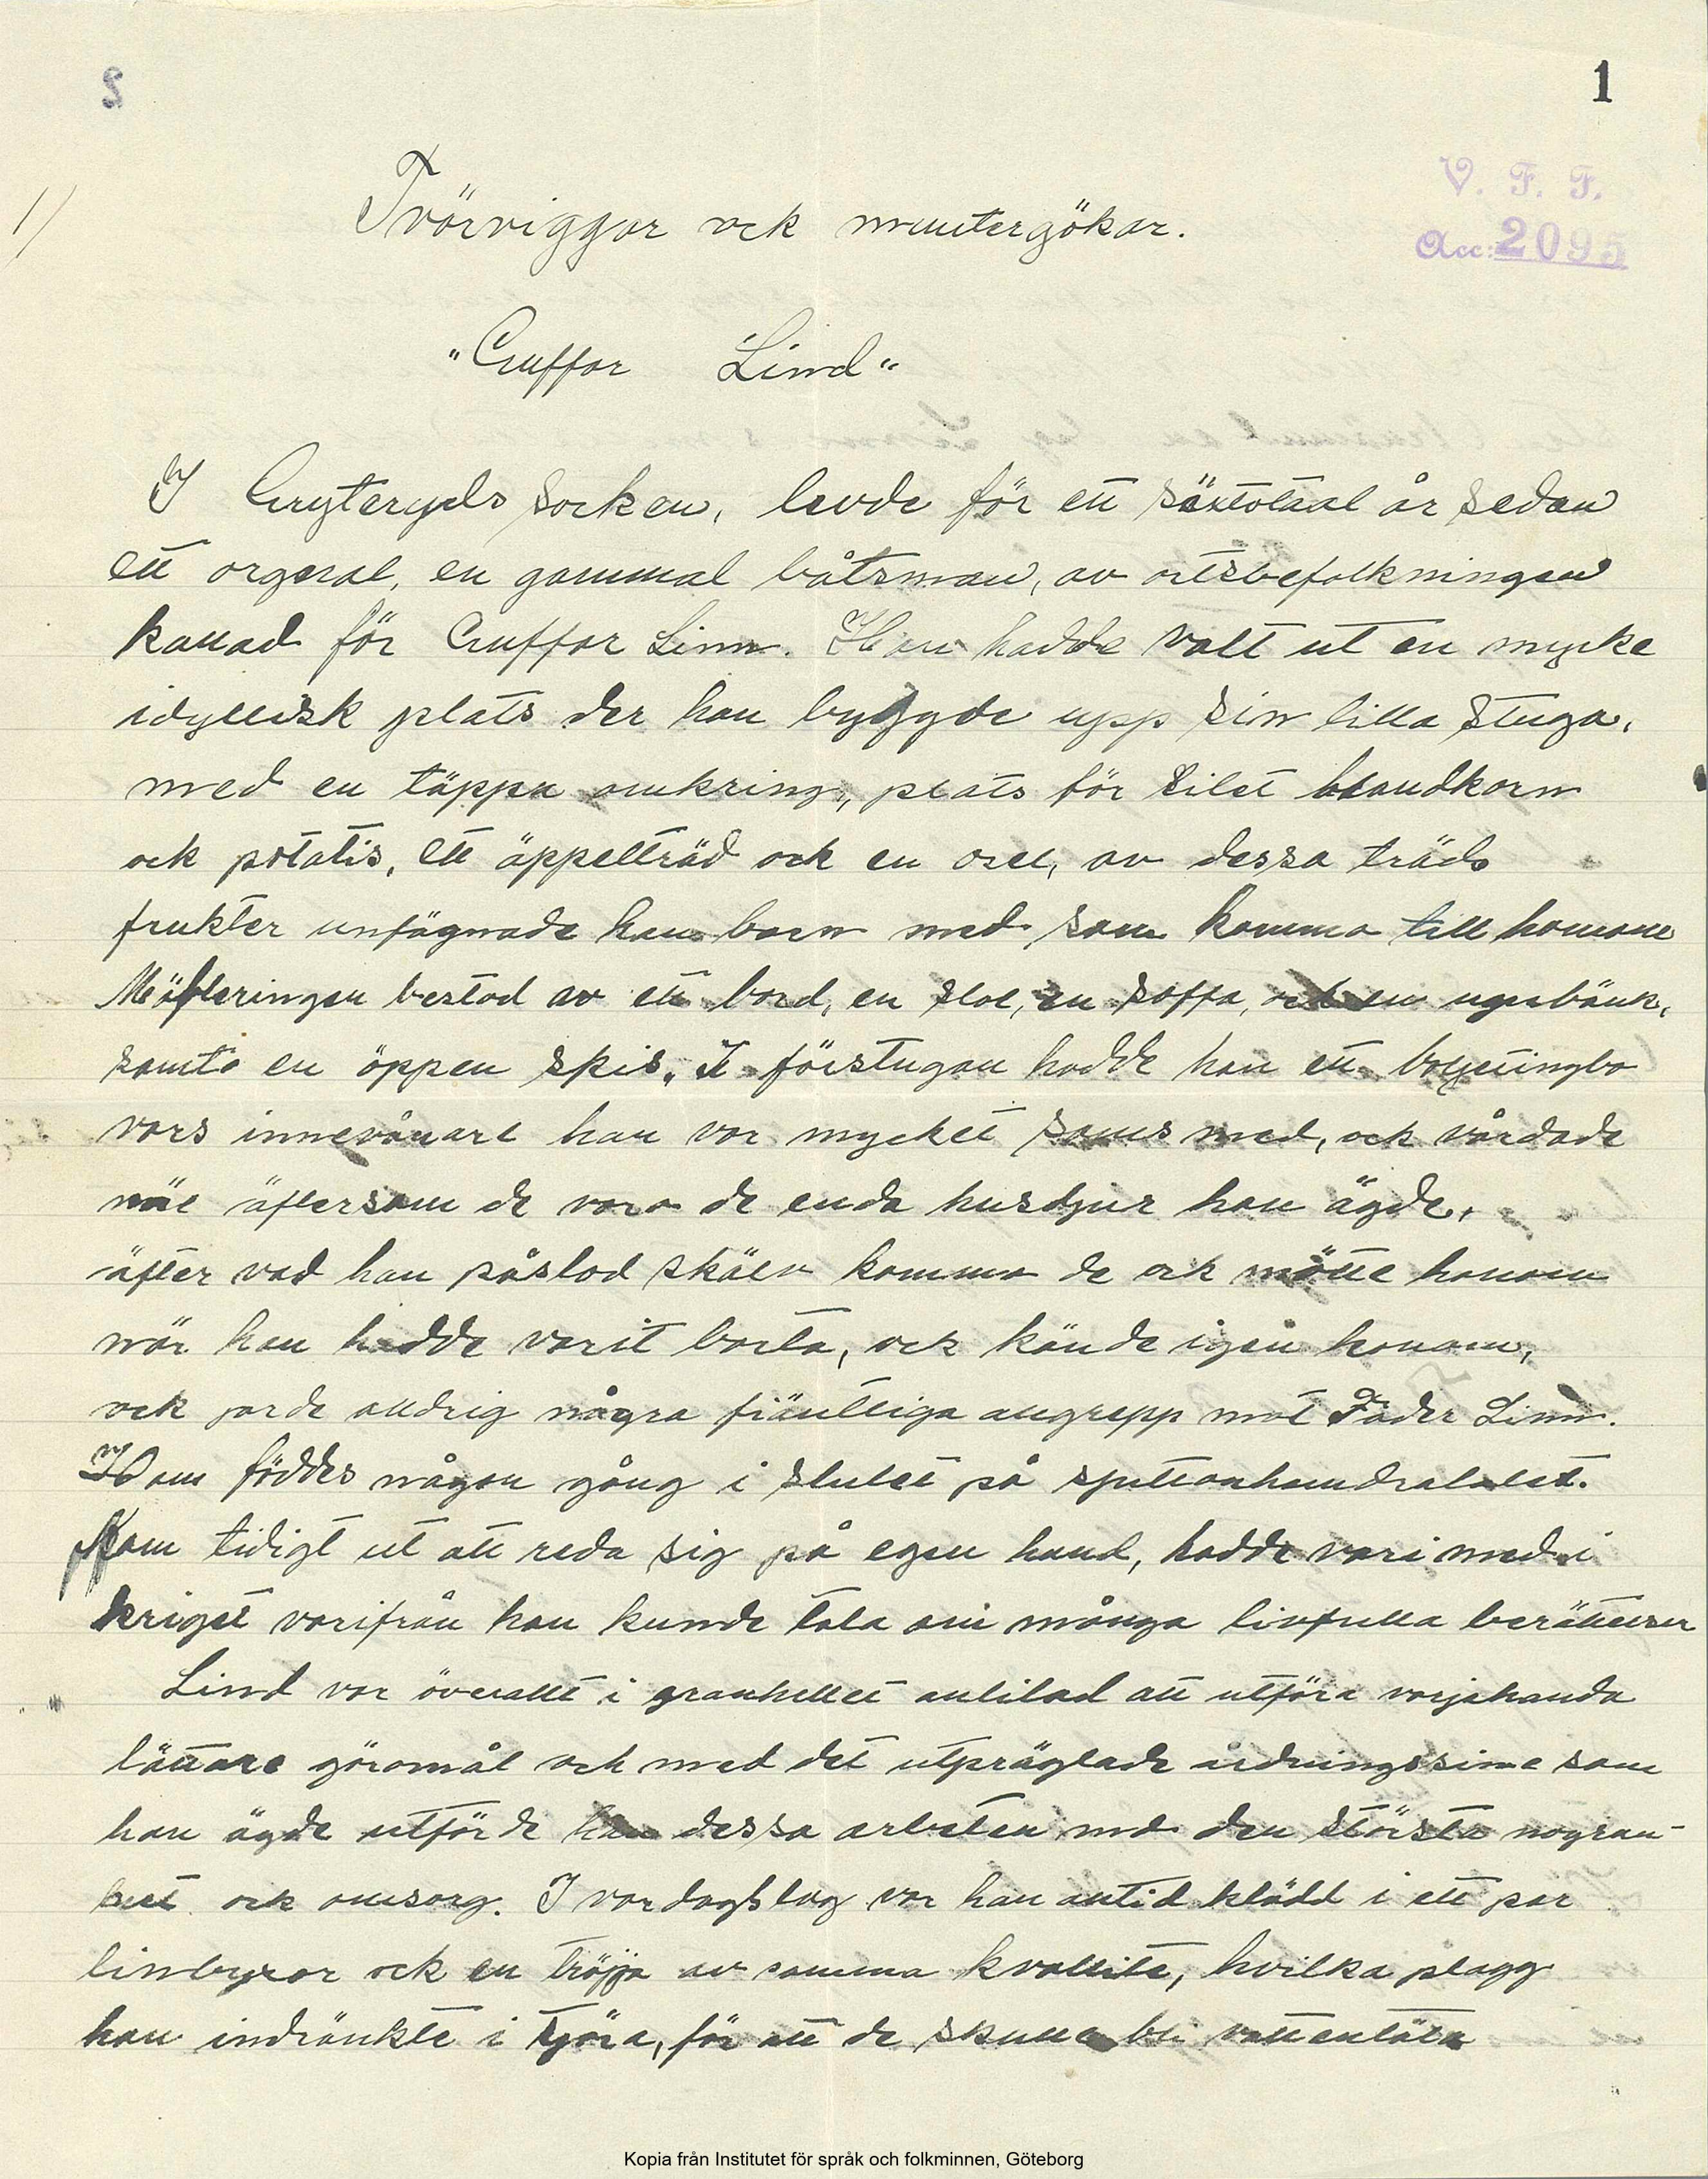 1
V. F. F.
Acc: 2095
1/
Tvärviggar ock muntergökar.
"Guffar Lind"
I Gryteryds socken, levde för ett sextotaal år sedan
ett orgenal, en gammal båtsman, av ortsbefolkningen
kallad för Guffar Linn. Han hadde valt ut en mycke
idyllisk plats der han byggde upp sin lilla stuga,
med en täppa omkring, plats för litet blandkorn
ock potatis, ett äppelträd ock en oxel, av dessa träds
frukter unfägnade han barn med som kommo till honom
Möbleringen bestod av ett bord, en stol, en soffa, ock en ugnsbänk,
samt en öppen spis. I förstugan hadde han ett bolgetingbo
vars innevånare han var mycket sams med, ock vårdade
väl äftersom de voro de enda husdjur han ägde,
äfter vad han påstod skälv kommo de ock mötte honom
när han hadde varit borta, ock kände igen honom,
ock jorde alldrig några fiäntliga angrepp mot Fader Linn.
Han föddes någon gång i slutet på sjuttonhundratalet.
Kom tidigt ut att reda sig på egen hand, hadde vari med i
kriget varifrån han kunde tala om många livfulla berättelser
Lind var överallt i grankellet anlitad att utföra varjehanda
lättare göromål ock med det utpräglade ordningssinne som
han ägde utförde dessa arbeten med den största nogran-
het ock omsorg. I vardagslag var han alltid klädd i ett par
linbyxor ock en tröjja av samma kvallite, hvilka plagg
han indränkte i tjöra, för att de skulle bli vattentäta
Kopia från Institutet för språk och folkminnen, Göteborg